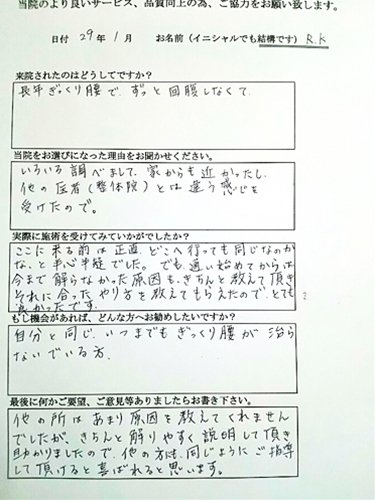 当院のより良いサービス、品質向上の為、ご協力をお願い致します。
日付 29年 1月 お名前(イニシャルでも結構です) R.K
来院されたのはどうしてですか?
長年ぎっくり腰で、ずっと回腹しなくて
当院をお選びになった理由をお聞かせください。
いろいろ調べまして、家からも近かったし、
他の医者(整体院)とは違う感じを
受けたので。
実際に施術を受けてみていかがでしたか?
ここに来る前は正直、どこへ行っても同じなのか
な、と半心半疑でした。でも、通い始めてからは
今まで解らなかった原因も、きちんと教えて頂き
それに合ったやり方を教えてもらえたので、とても
良かったです。
もし機会があれば、どんな方へお勧めしたいですか?
自分と同じ、いつまでもぎっくり腰が治ら
ないでいる方。
最後に何かご要望、ご意見等ありましたらお書き下さい。
他の所はあまり原因を教えてくれません
でしたが、きちんと解りやすく説明して頂き
助かりましたので、他の方も、同じようにご指導
して頂けると喜ばれると思います。